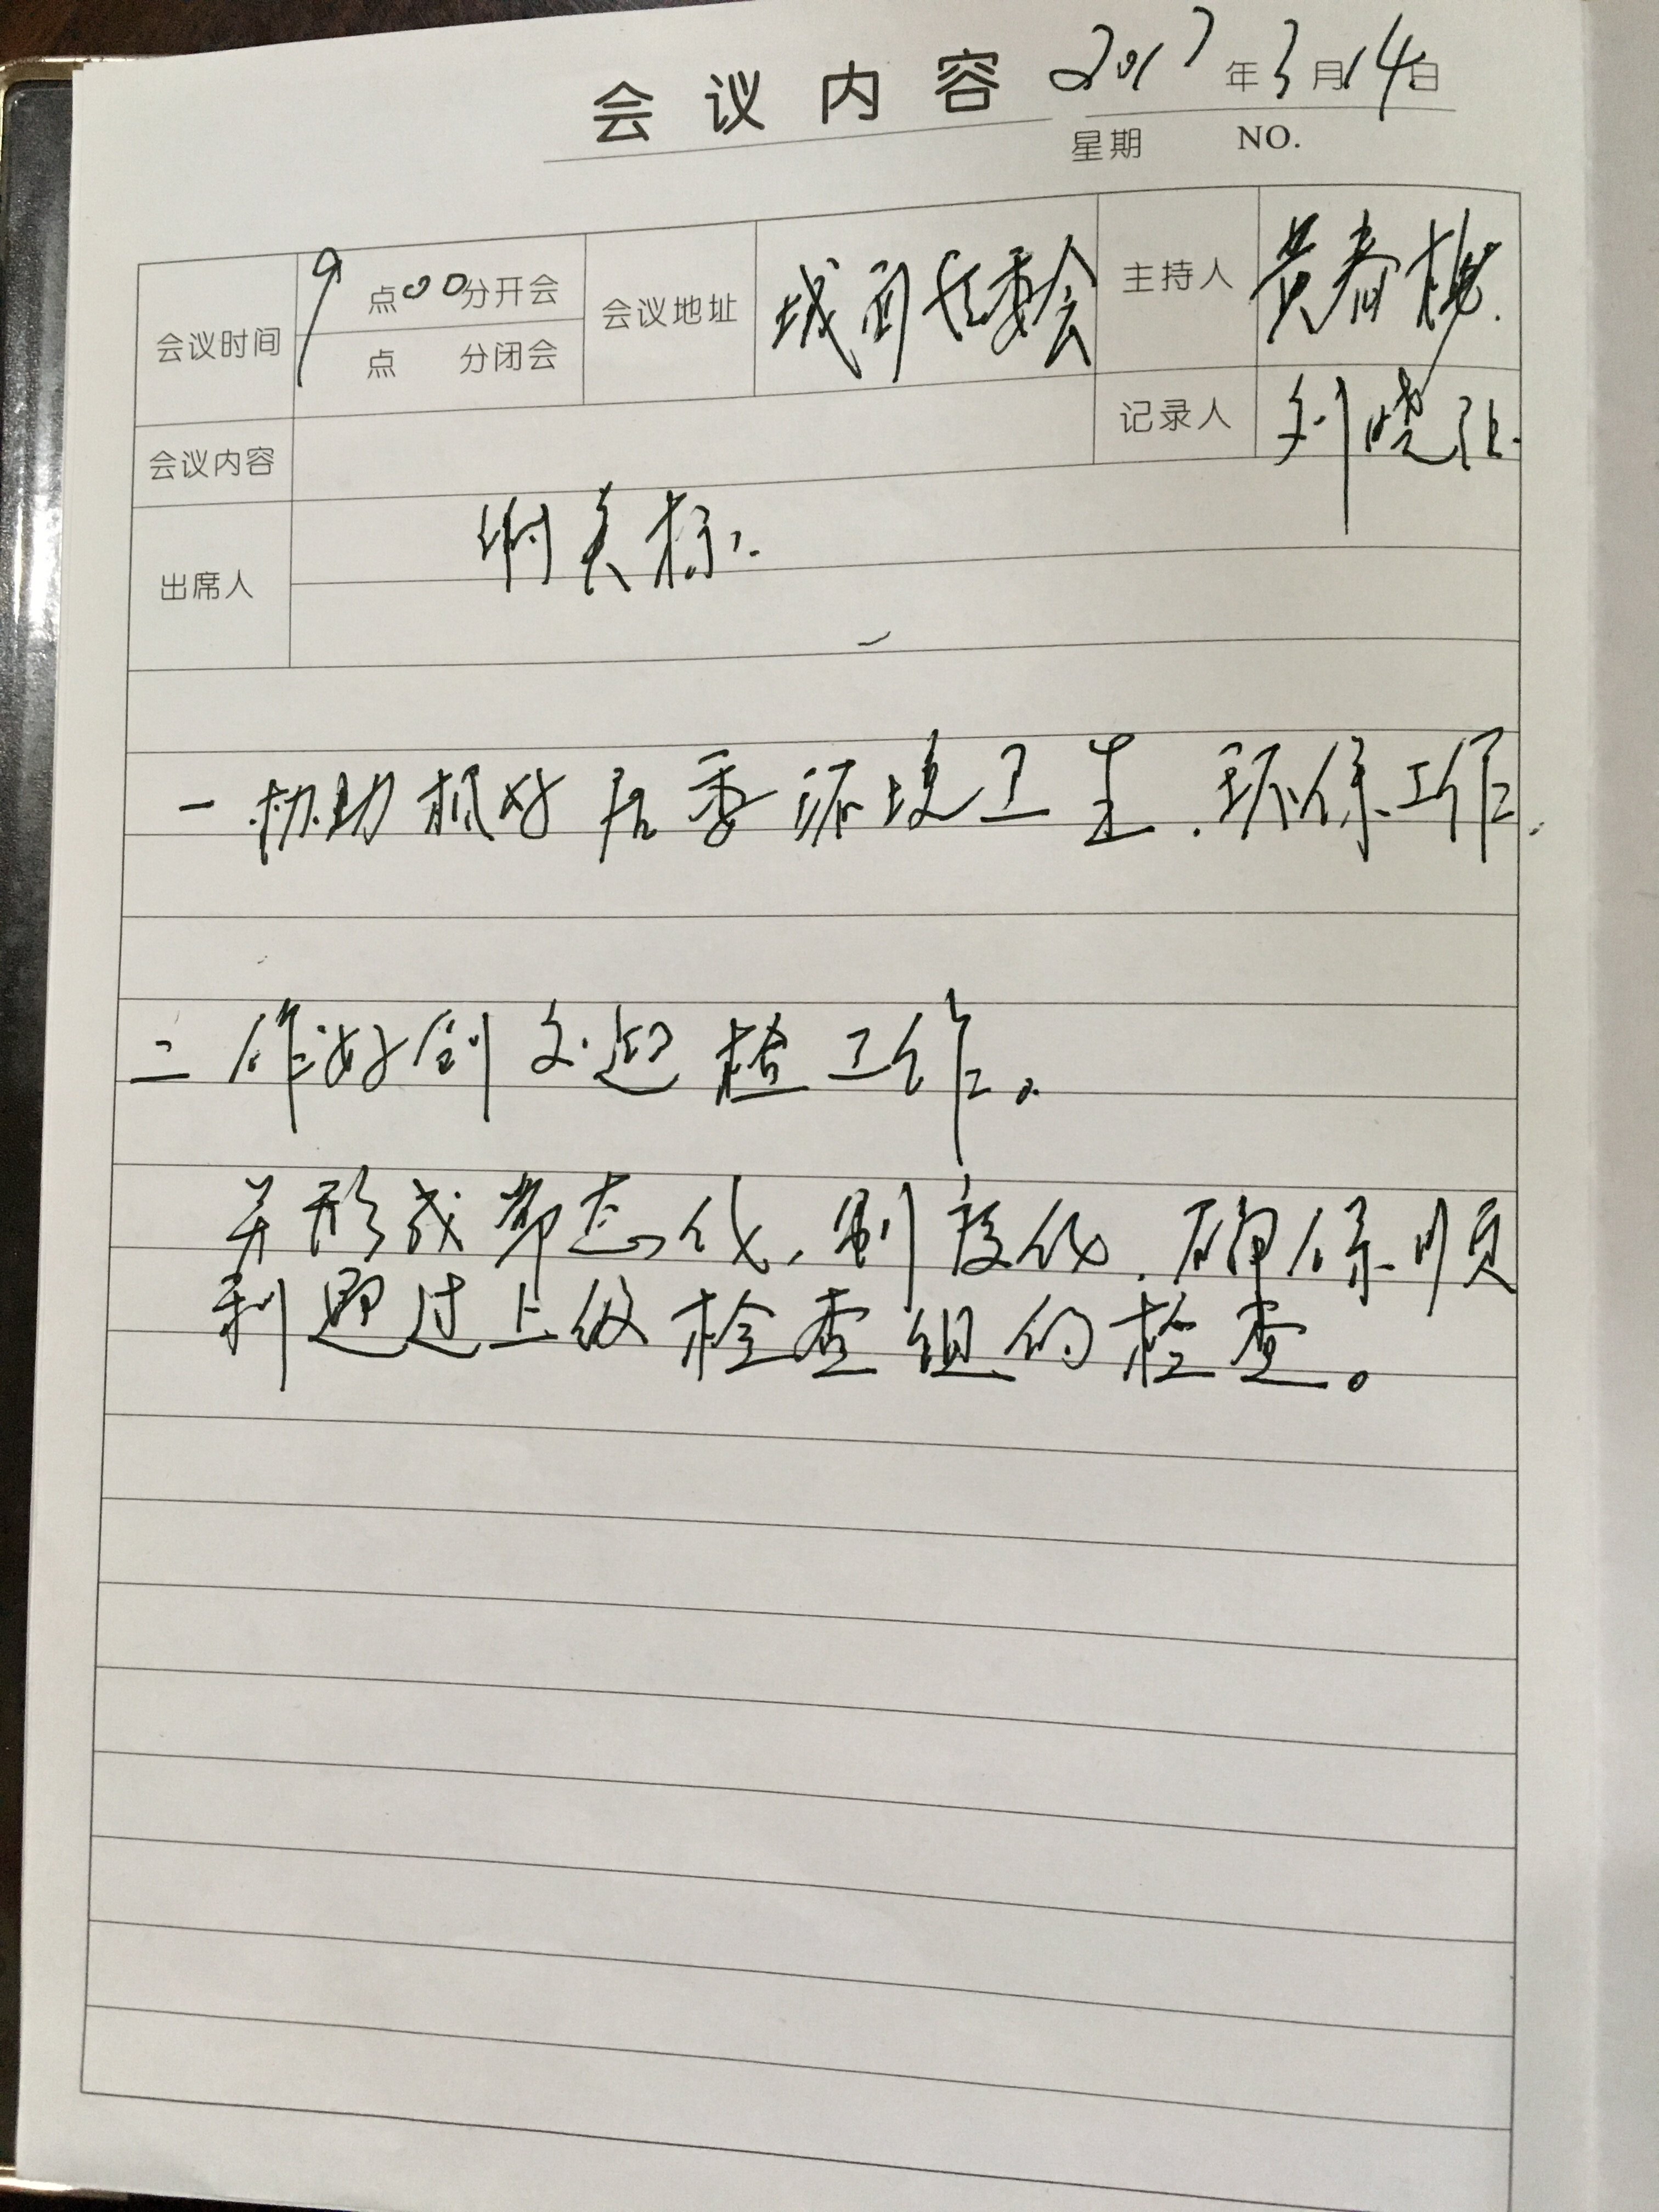 会议内容 2017年3月14日
星期 NO.
会议时间 9点00分开会
点 分闭会
会议地址 居委会
主持人 黄春
记录人 刘晓
会议内容
出席人
一 协助抓好居委环境卫生、环保工作.
二 作好创文迎检工作。
并形成常态化、制度化、确保顺
利通过上级检查组的检查。